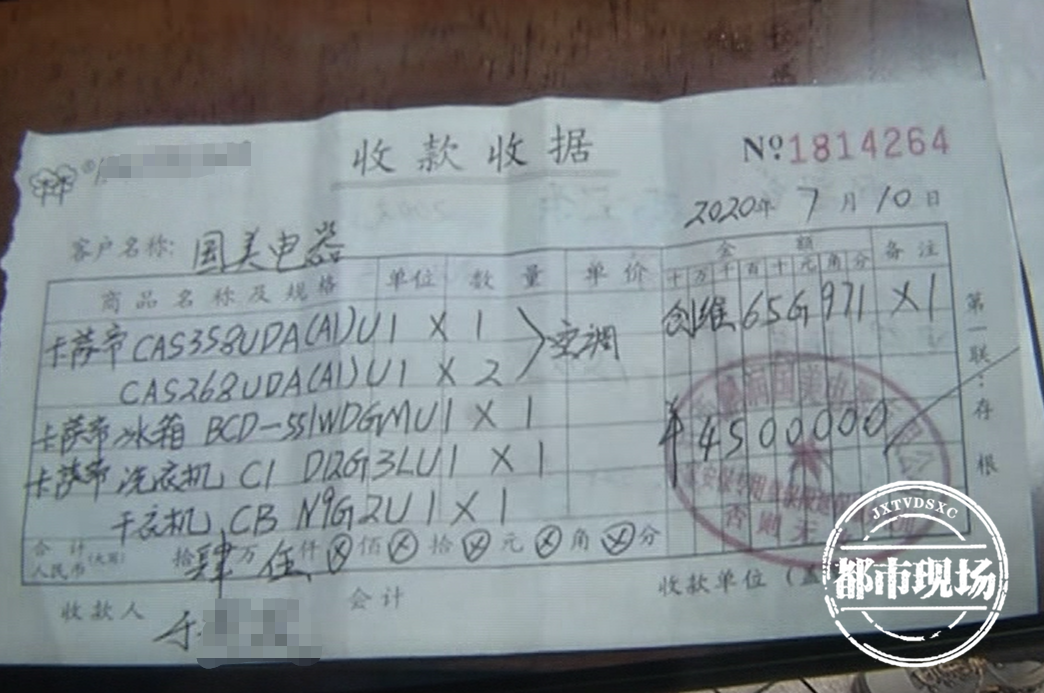 收款收据 Nº1814264
2020年 7月 10日
客户名称: 国美电器
商品名称及规格 单位 数量 单价 金额 备注
十 万 千 百 十 元 角 分
卡萨帝 CAS358UDA(A1)U1 X 1 空调 创维 65G971 X1
CAS268UDA(A1)U1 X 2
卡萨帝 冰箱 BCD-551WDGMU1 X 1 ¥4500000
卡萨帝 洗衣机 C1 D12G3LU1 X 1
干衣机 CB N9G2U1 X 1
合计人民币(大写) 拾肆万伍仟⊗佰⊗拾⊗元⊗角⊗分
收款人 会计 收款单位(盖
第一联:存根
JXTVDSXC
都市现场